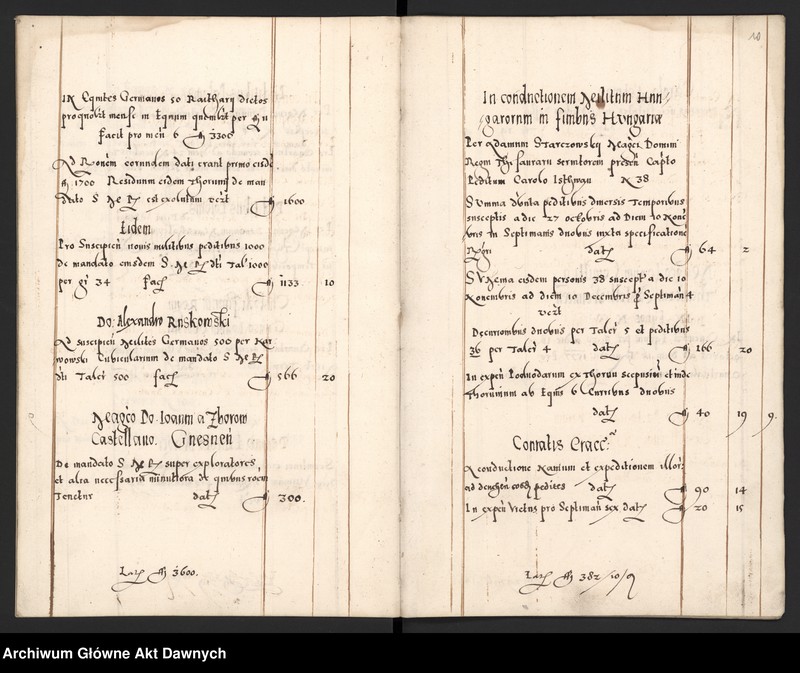 In Equites Germanos 50 Raitharÿ dictos
pro quolibet mense in Equum quemlibet per fl 11
facit pro men 6 fl 3300
Ad Ronem eorundem dati erant primo eisdē
fl 1700 Residuum eidem Thorunÿ de man
dato S M R est exolutum vczt fl 1600
Eidem
Pro Suscipien novis militibus peditibus 1000
de mandato eiusdem S M R dti Tal 1000
per g 34 fac fl 1133 10
Do: Alexandro Ruskowski
Ad suscipien Milites Germanos 500 per Kar
wowski Cubicularium de mandato S M R
dti Taler 500 fac fl 566 20
Magco Do. Ioanni a Zborow
Castellano. Gnesnen
De mandato S M R super exploratores,
et alia necessaria minutiora de quibus roem
Tenetur dat fl 300.
Lat fl 3600.
10
In conductionem Militum Hun=
=garorum in finibus Hungariæ
Per Adamum Starczowskÿ Magci Domini
Regni Thesaurarÿ servitorem presen Capto
Peditum Carolo Isthwan N 38
Summa dunta peditibus diversis Temporibus
susceptis a die 27 octobris ad Diem 10 Novē
bris in Septimanis duabus iuxta specificatione
dat fl 64 2
Summa eisdem personis 38 suscept a die 10
Novembris ad diem 10 Decembris p Septiman 4
vczt
Decurionibus duobus per Taler 5 et peditibus
36 per Taler 4 dat fl 166 20
In expen Podwodarum ex Thorun Scepusiū et inde
Thorunium ab Equis 6 Curribus duobus
dat fl 40 19 9.
Conratis Cracc:
A conductione Navium et expeditionem illor:
ad pedites dat fl 90 14
In expen Victus pro Septiman sex dat fl 20 15
Lat fl 382/10/9
Archiwum Główne Akt Dawnych